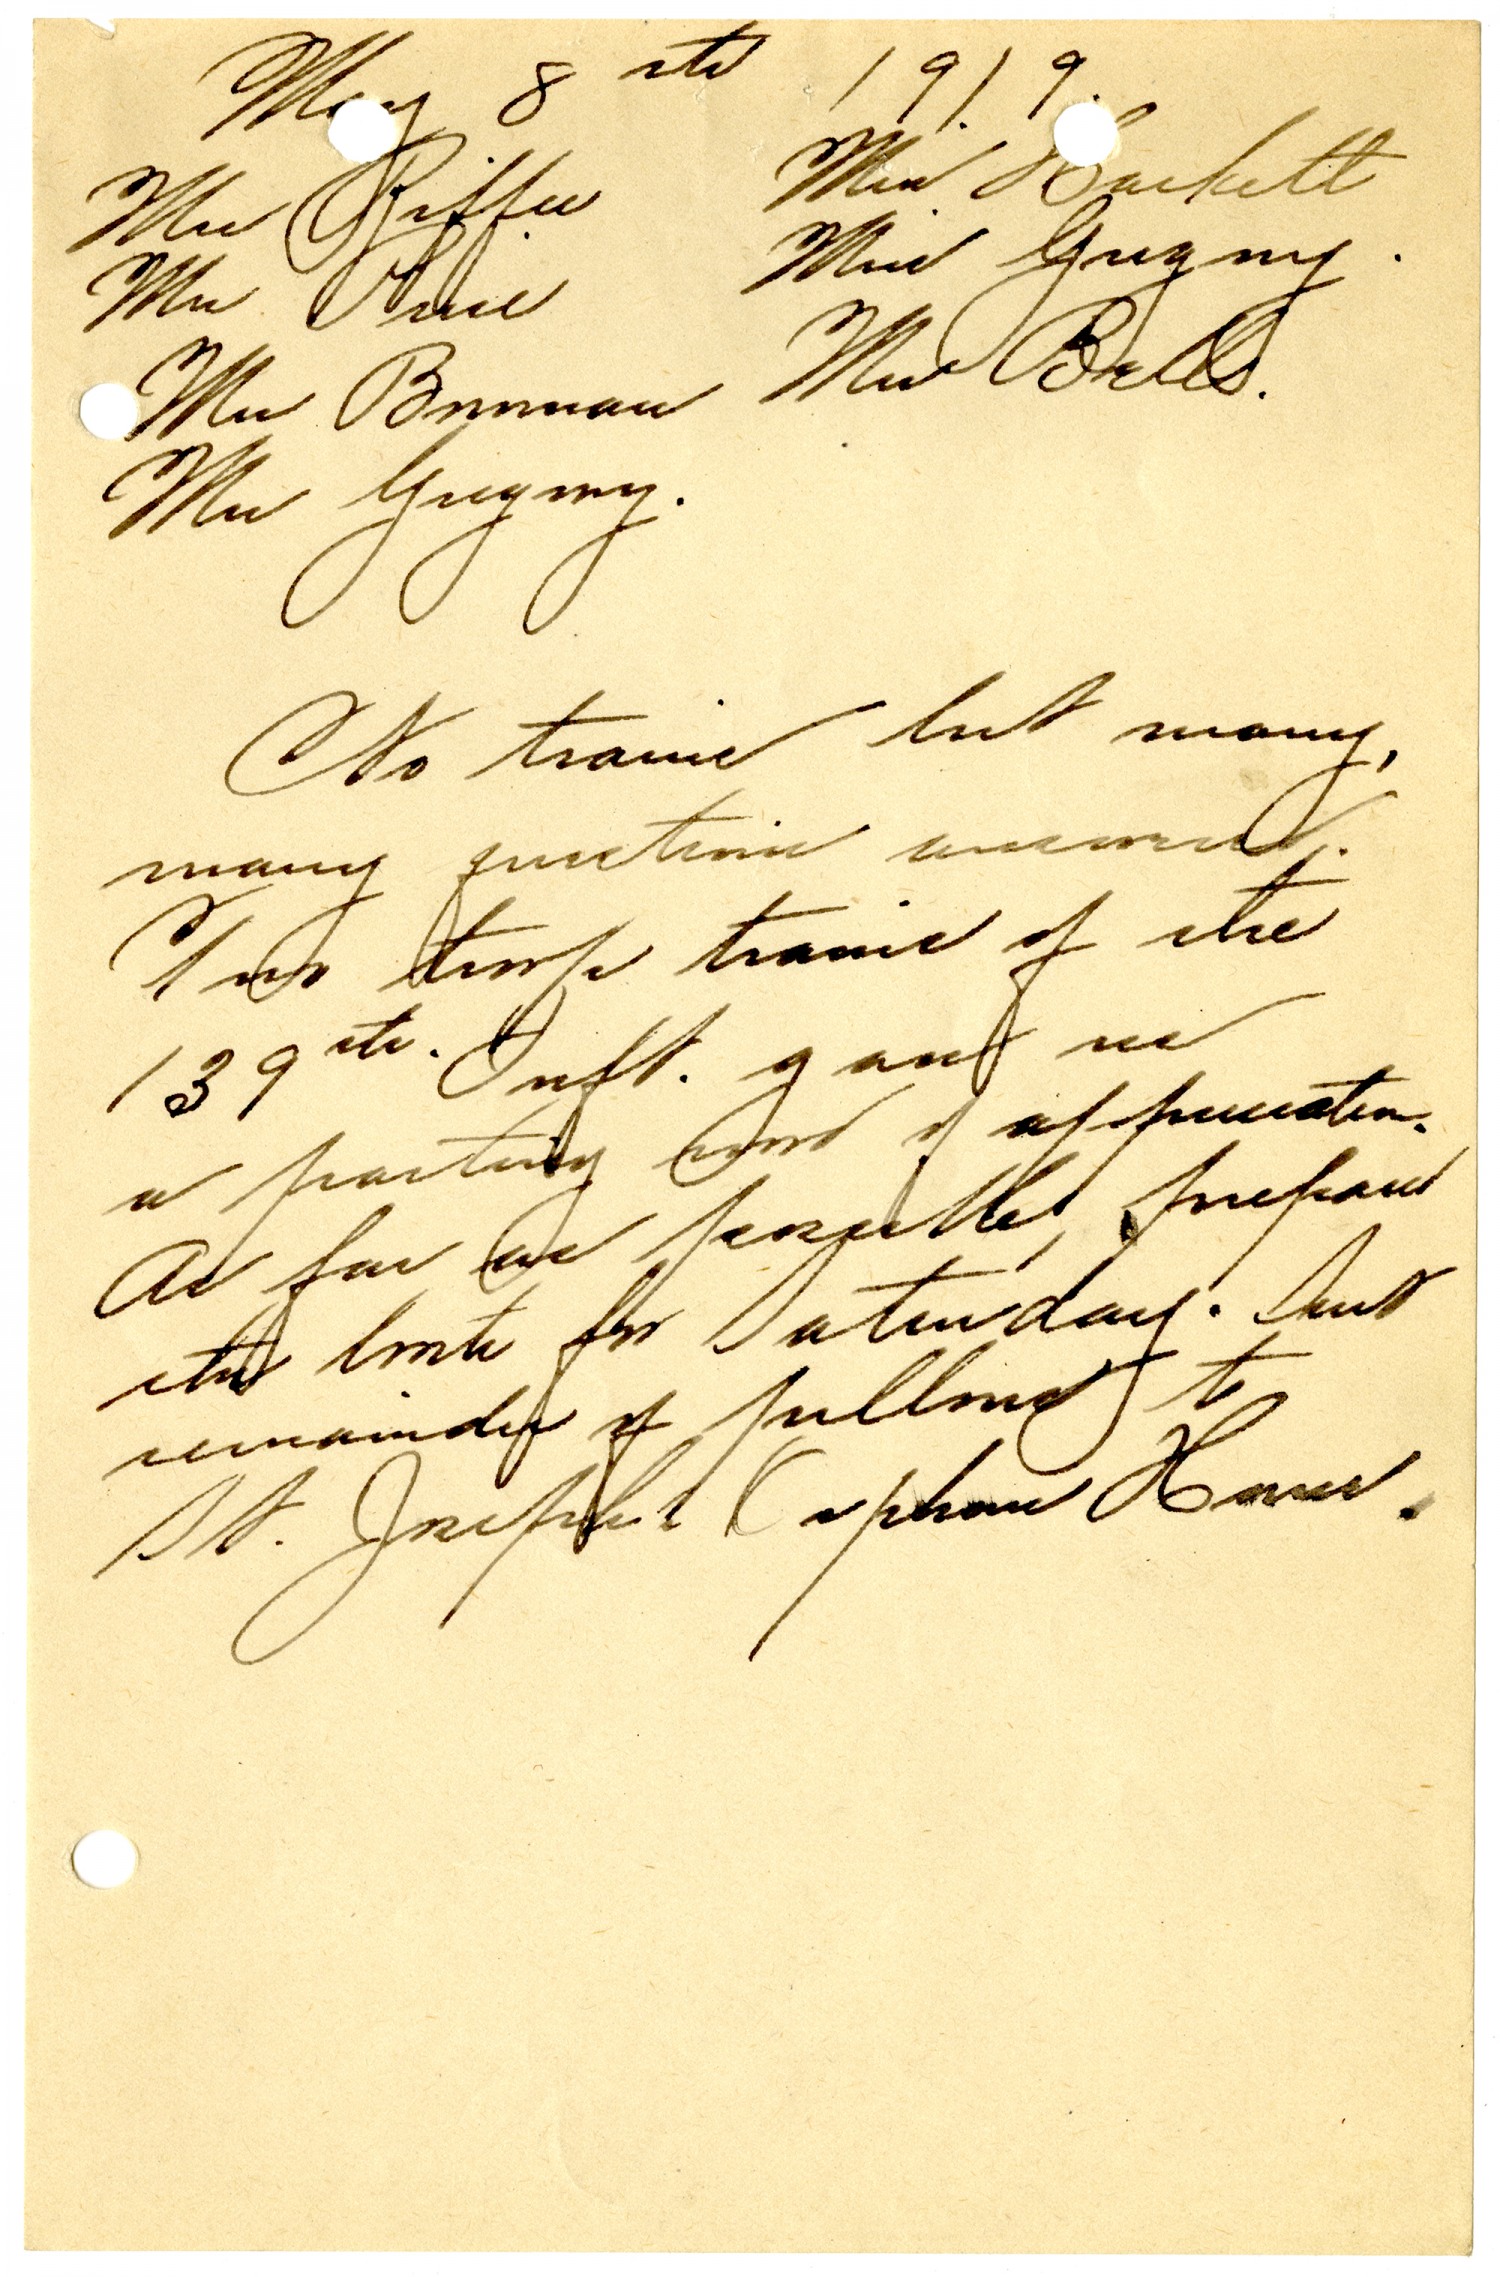 May 8th 1919.
Mrs Riffer
Mrs Price
Mrs Brennan
Mrs Gregory.
Miss Hackett
Miss Gregory.
Mrs Bell.
No trains but many,
many questions answered.
Two troop trains of the
139th. Inft. gave us
a parting word of appreciation.
As far as possible, prepare
the booth for Saturday. Sent
remainder of pillows to
St. Joseph's Orphans Home.